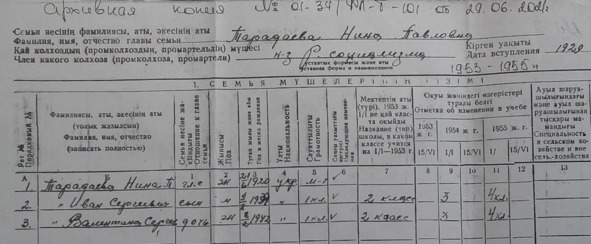 Архивная копия № 01-34/ФЛ-Т-101 от 29.06.2021г
Семья несінің фамилиясы, аты, әкесінің аты
Фамилия, имя, отчество главы семьи Тарадаева Нина Павловна
Қай колхоздың (промколхоздың, промартельдің) мүшесі
Член какого колхоза (промколхоза, промартели) к-з социализма
Кірген уақыты
Дата вступления 1929
1953-1955 гг
1. СЕМЬЯ МҮШЕЛЕРІ
Рет №
Порядковый №
Фамилиясы, аты, әкесінің аты
(толық жазылсын)
Фамилия, имя, отчество
(записать полностью)
Отношение к главе семьи
Жынысы
Пол
Ұлты
Национальность
Сауаттылығы
Грамотность
Мектептің аты (түрі), 1953 ж. 1/I не қай класта оқыйды
Название (тип) школы, в каком классе учится на 1/I—1953 г.
Оқу жөніндегі өзгерістері туралы белгі
Отметка об изменении в учебе
1953 ж. г. 1954 ж. г. 1955 ж. г.
15/VI 1/I 15/VI 1/I 15/VI
Ауыл шаруашылығындағы және ауыл шаруашылығынан тысқары мамандығы
Специальность в сельском хозяйстве и вне сель.-хозяйства
А Б 1 2 3 4 5 6 7 8 9 10 11 12 13
1. Тарадаева Нина П глс ж 1920 укр м-г ✓
2. " Иван Сергеевич сын м " 1кл. ✓ 2 класс 3 4кл.
3. " Валентина Сергеев дочь ж 1942 " 1кл. ✓ 2 класс 3 4кл.